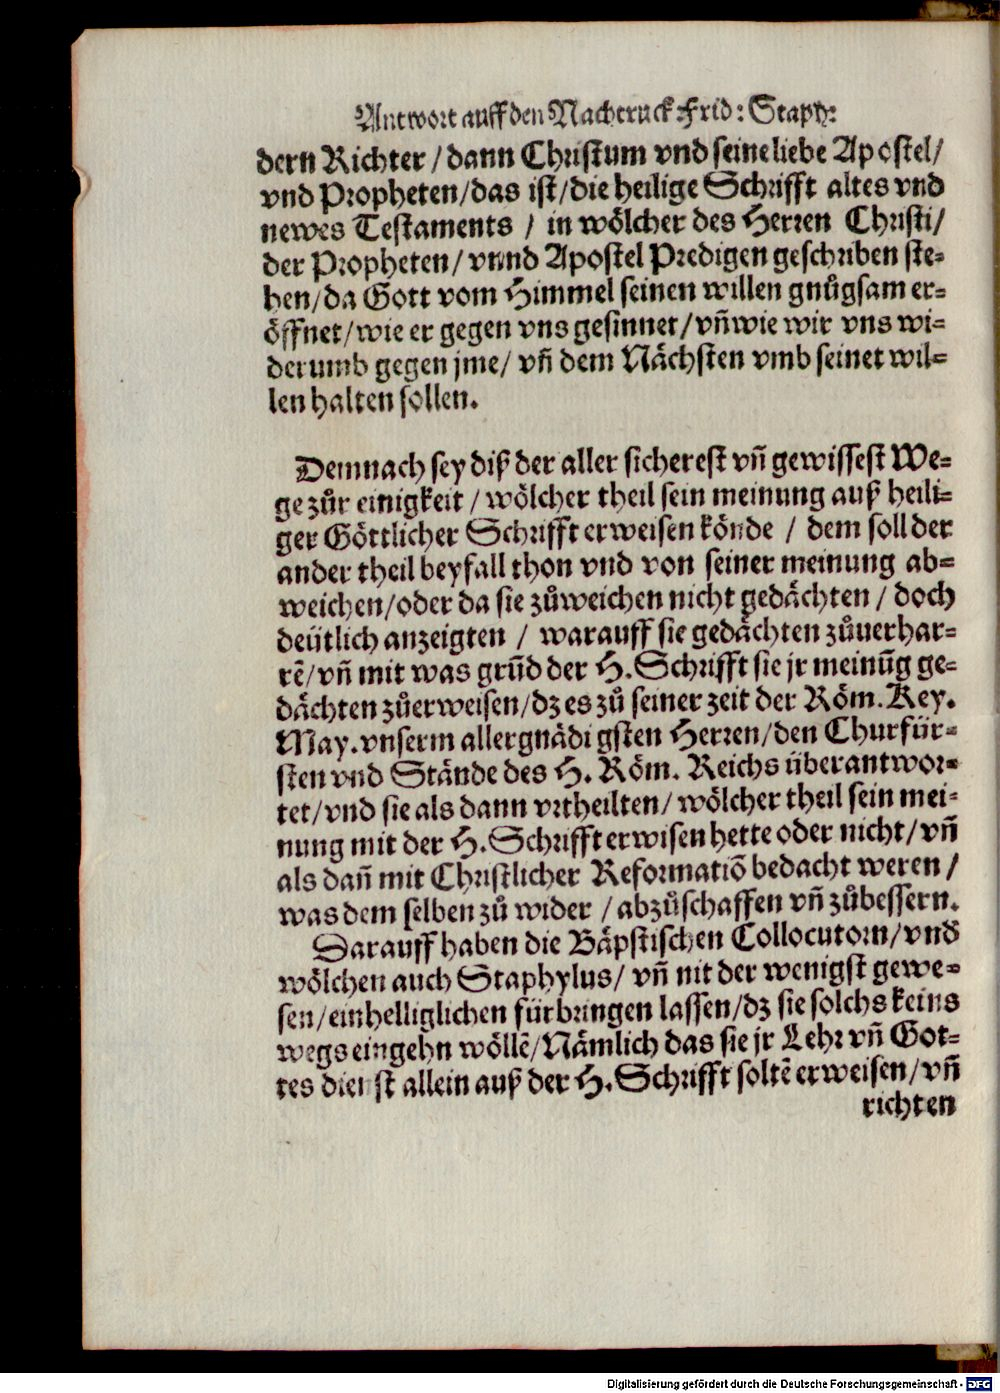 Antwort auff den Nachtruck Frid: Staph:
dern Richter / dann Christum vnd seine liebe Apostel/
vnd Propheten/das ist/die heilige Schrifft altes vnd
newes Testaments / in wölcher des Herren Christi/
der Propheten/ vnnd Apostel Predigen geschriben ste-
hen/da Gott vom Himmel seinen willen gnůgsam er-
öffnet/wie er gegen vns gesinnet/vñ wie wir vns wi-
derumb gegen jme/ vñ dem Nächsten vmb seinet wil-
len halten sollen.
Demnach sey diß der aller sicherest vñ gewissest We-
ge zůr einigkeit / wölcher theil sein meinung auß heili-
ger Göttlicher Schrifft erweisen könde / dem soll der
ander theil beyfall thon vnd von seiner meinung ab-
weichen/oder da sie zůweichen nicht gedächten / doch
deütlich anzeigten / warauff sie gedächten zůuerhar-
rẽ/vñ mit was grũd der H. Schrifft sie jr meinũg ge-
dächten zůerweisen/dz es zů seiner zeit der Röm. Key.
May. vnserm allergnädigsten Herren/den Churfür-
sten vnd Stände des H. Röm. Reichs überantwor-
tet/vnd sie als dann vrtheilten/ wölcher theil sein mei-
nung mit der H. Schrifft erwisen hette oder nicht/vñ
als dañ mit Christlicher Reformatiõ bedacht weren /
was dem selben zů wider / abzůschaffen vñ zůbessern.
Darauff haben die Bäpstischen Collocutorn/vnd
wölchen auch Staphylus/ vñ nit der wenigst gewe-
sen/einhelliglichen fürbringen lassen/dz sie solchs keins
wegs eingehn wöllẽ/Nämlich das sie jr Lehr vñ Got-
tes dienst allein auß der H. Schrifft soltẽ erweisen/vñ
richten
Digitalisierung gefördert durch die Deutsche Forschungsgemeinschaft - DFG